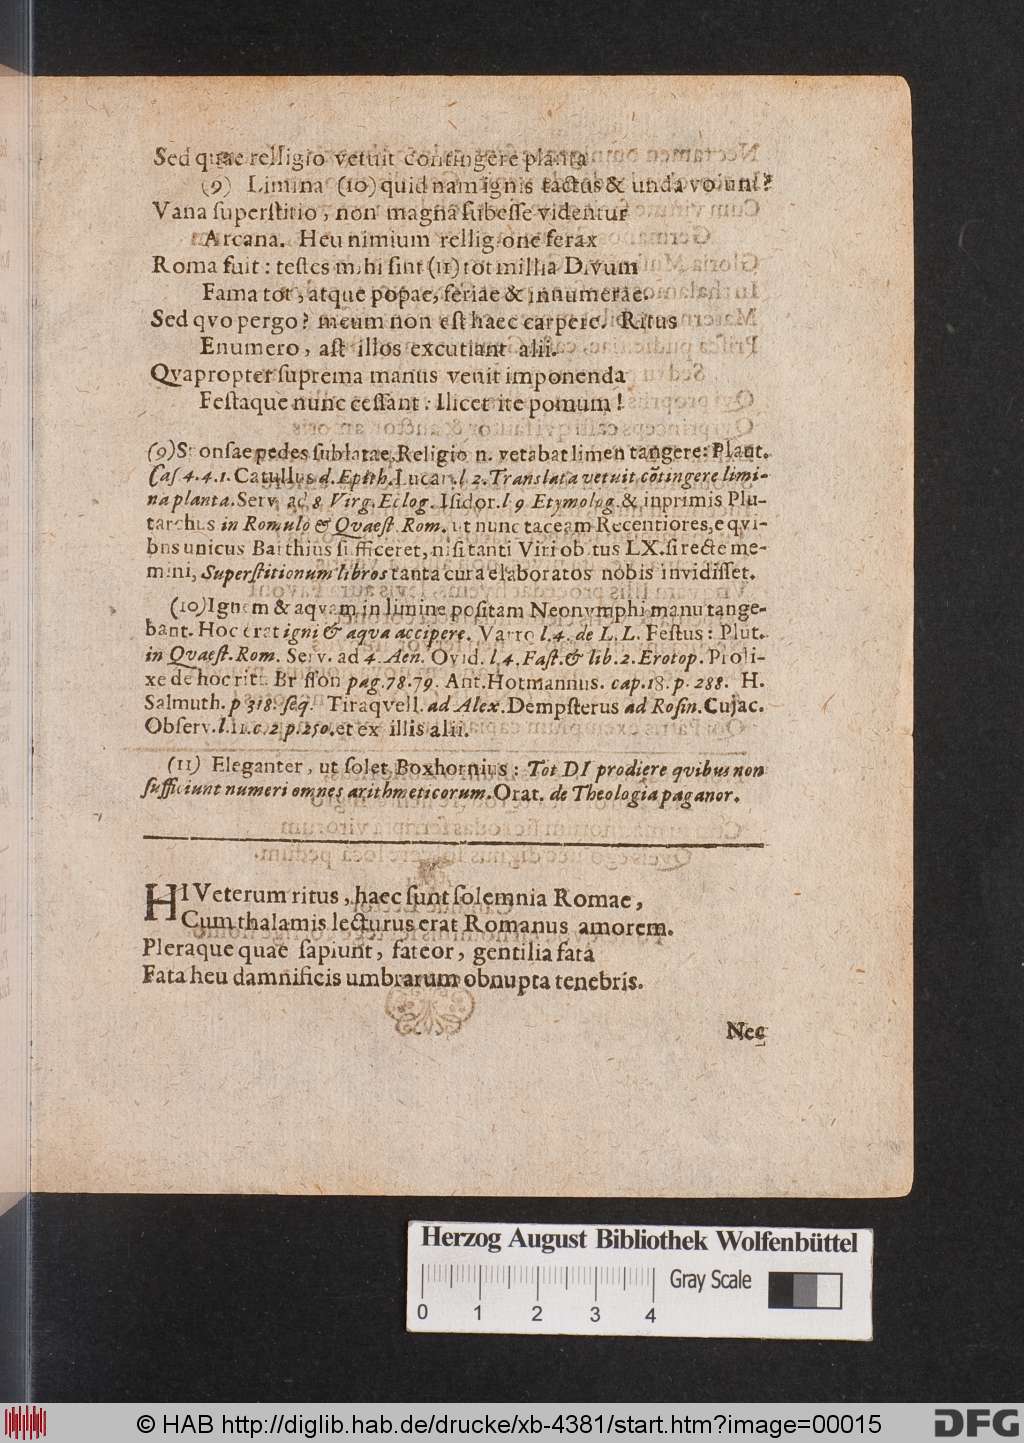 Sed quae relligio vetuit contingere planta
(9) Limina (10) quid nam ignis tactus & unda volunt?
Vana superstitio, non magna subesse videntur
Arcana. Heu nimium relligione ferax
Roma fuit: testes mihi sint (11) tot millia Divum
Fama tot, atque popae, feriae & innumerae.
Sed qvo pergo? meum non est haec carpere. Ritus
Enumero, ast illos excutiant alii.
Qvapropter suprema manus venit imponenda
Festaque nunc cessant: Ilicet ite pomum!
(9) Sponsae pedes sublatae, Religio n. vetabat limen tangere: Plaut.
Cas 4.4.1. Catullus d. Epith. Lucan. l 2. Translata vetuit cõtingere limi-
na planta. Serv. ad 8 Virg. Eclog. Isidor. l 9 Etymolog. & inprimis Plu-
tarchus in Romulo & Qvaest. Rom. ut nunc taceam Recentiores, e qvi-
bus unicus Barthius sufficeret, nisi tanti Viri obitus LX. si recte me-
mini, Superstitionum libros tanta cura elaboratos nobis invidisset.
(10) Ignem & aqvam in limine positam Neonymphi manu tange-
bant. Hoc erat igni & aqva accipere. Varro l.4. de L.L. Festus: Plut.
in Qvaest. Rom. Serv. ad 4. Aen. Ovid. l.4. Fast. & lib. 2. Erotop. Proli-
xe de hoc ritu Brisson pag. 78. 79. Ant. Hotmannus. cap. 18. p. 288. H.
Salmuth. p 318. seq. Tiraqvell. ad Alex. Dempsterus ad Rosin. Cujac.
Observ. l. 11. c. 2 p. 250. et ex illis alii.
(11) Eleganter, ut solet Boxhornius: Tot DI prodiere qvibus non
sufficiunt numeri omnes arithmeticorum. Orat. de Theologia paganor.
HI Veterum ritus, haec sunt solemnia Romae,
Cum thalamis lecturus erat Romanus amorem.
Pleraque quae sapiunt, fateor, gentilia fata
Fata heu damnificis umbrarum obnupta tenebris.
Nec
Herzog August Bibliothek Wolfenbüttel
Gray Scale
0 1 2 3 4
© HAB http://diglib.hab.de/drucke/xb-4381/start.htm?image=00015
DFG